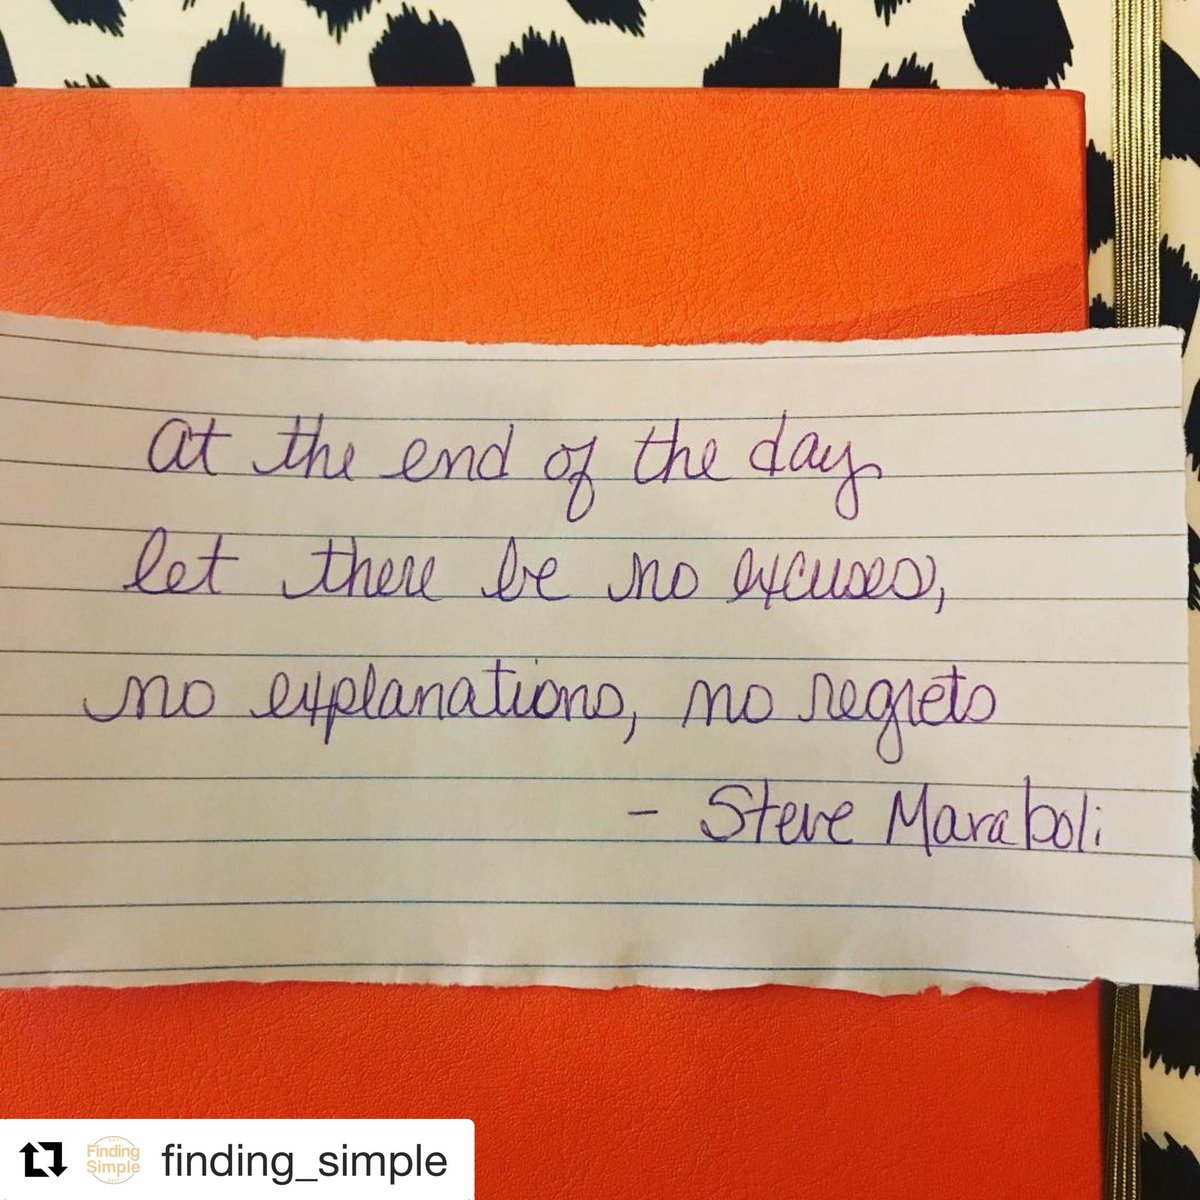 at the end of the day
let there be no excuses,
no explanations, no regrets
- Steve Maraboli
Finding
Simple
finding_simple